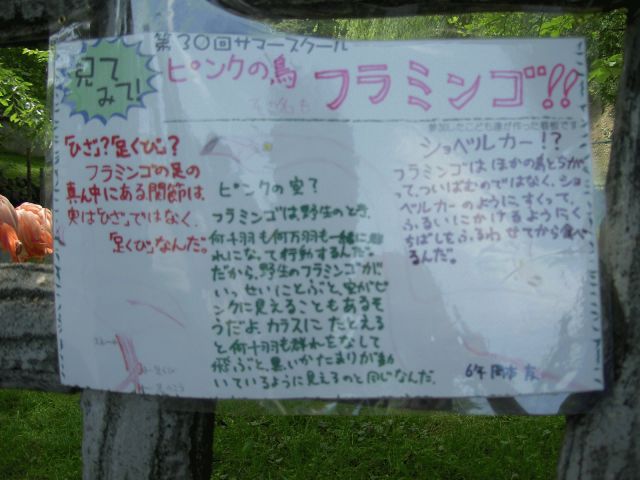 第30回サマースクール
見て
みて!
ピンクの鳥
フラミンゴ!!
参加したこども達が作った看板です
「ひざ」?「足くび」?
フラミンゴの足の
真ん中にある関節は、
実は「ひざ」ではなく、
「足くび」なんだ。
ピンクの空?
フラミンゴは野生のとき、
何千羽も何万羽も一緒に群
れになって行動するんだ。
だから、野生のフラミンゴが
いっせいにとぶと、空がピ
ンクに見えることもあるそ
うだよ。カラスにたとえる
と何千羽も群れをなして
飛ぶと、黒いかたまりが動
いているように見えるのと同じなんだ。
ショベルカー!?
フラミンゴはほかの鳥とちが
って、ついばむのではなく、ショ
ベルカーのようにすくって、
ふるいにかけるようにく
ちばしをふるわせてから食べ
るんだ。
6年